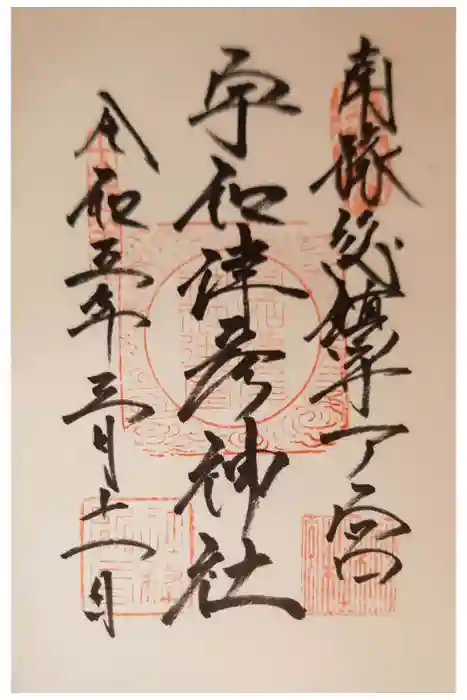 南豫総鎮守一宮
宇和津彦神社
令和五年三月十一日